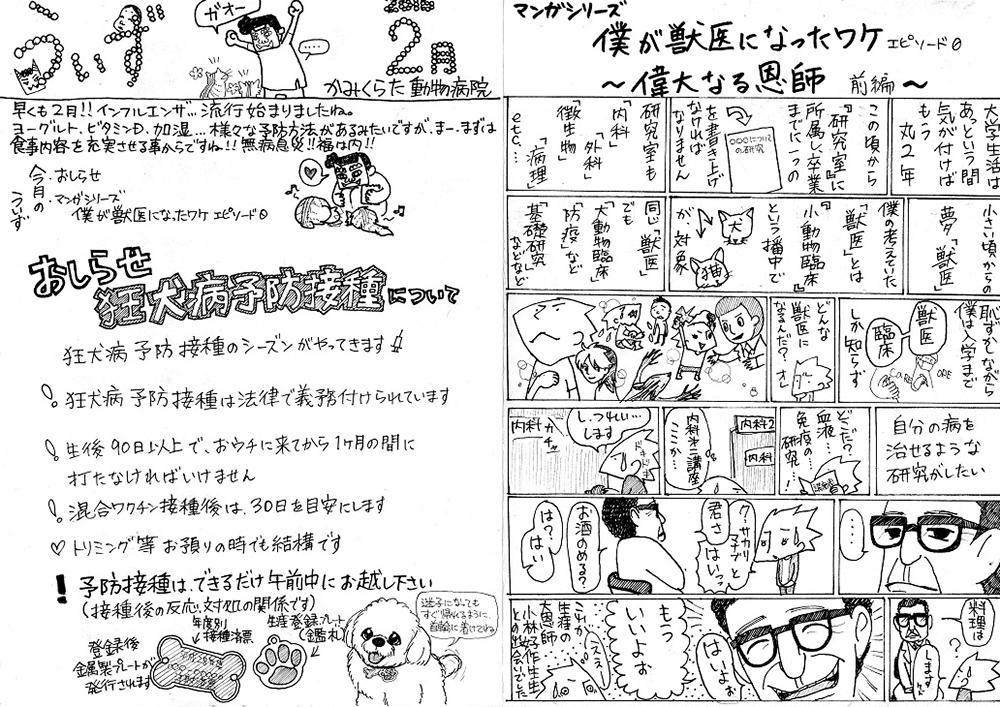 ガオー
…
ういず
2016
2月
かみくらた動物病院
早くも2月!! インフルエンザ…流行始まりましたね。
ヨーグルト、ビタミンD、加湿…様々な予防方法があるみたいですが、まー、まずは
食事内容を充実させる事からですね!! 無病息災!! 福は内!!
今月のういず
・おしらせ
・マンガシリーズ
僕が獣医になったワケ エピソード0
おしらせ
狂犬病予防接種について
狂犬病予防接種のシーズンがやってきます
! 狂犬病予防接種は法律で義務付けられています
! 生後90日以上で、おウチに来てから1ヶ月の間に
打たなければいけません
! 混合ワクチン接種後は、30日を目安にします
♡ トリミング等お預りの時でも結構です
! 予防接種は、できるだけ午前中にお越し下さい
(接種後の反応、対処の関係です)
登録後
金属製プレートが
発行されます
年度別
接種済票
生涯登録プレート
(鑑札)
迷子になっても
すぐ帰れるように、
首輪に着けてね
マンガシリーズ
僕が獣医になったワケ エピソード0
〜偉大なる恩師 前編〜
大学生活は
あっという間
気が付けば
もう丸2年
この頃から
『研究室』に
所属し、卒業
までに一つの
〇〇〇についての研究
を書き上げ
なければ
なりません
研究室も
「内科」「外科」
「微生物」「病理」
etc…
小さい頃からの
夢「獣医」
僕の考えていた
「獣医」とは
『小動物臨床』
という括中で
犬
猫
が対象
同じ「獣医」
でも
「大動物臨床」
「防疫」など
「基礎研究」
などなど
恥ずかしながら
僕は入学まで
獣医
臨床
しか知らず
どんな
獣医に
なるんだ?オレ
自分の病を
治せるような
研究がしたい
どこだ?
血液…
免疫の…
研究…
内科2
内科
内科第二講座
ここか…
内科
ガチャ
しつれい…
します
ドキドキ
…
ク・サカリ
マナブと
君さ
はいっ
お酒のめる?
は?はい
料理は?
しますし…
はいよぉ
もう
いいよぉ
ええっ
これが
生涯の
大恩師
小林好作先生
との出会いでした